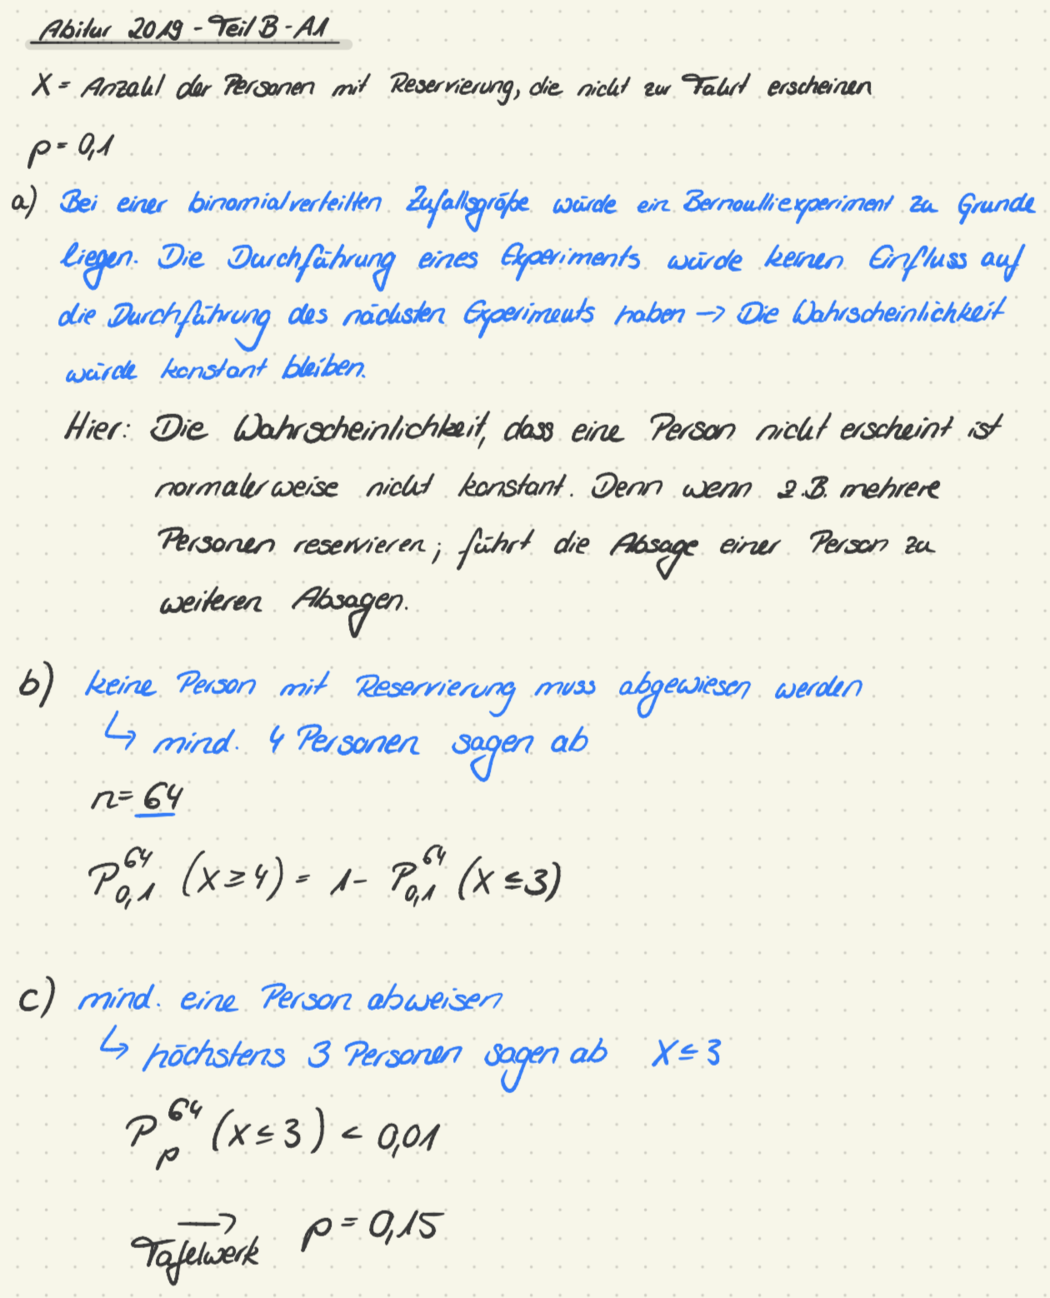 Abitur 2019 - Teil B - A1
X = Anzahl der Personen mit Reservierung, die nicht zur Fahrt erscheinen
p = 0,1
a) Bei einer binomialverteilten Zufallsgröße würde ein Bernoulliexperiment zu Grunde
liegen. Die Durchführung eines Experiments würde keinen Einfluss auf
die Durchführung des nächsten Experiments haben → Die Wahrscheinlichkeit
würde konstant bleiben.
Hier: Die Wahrscheinlichkeit, dass eine Person nicht erscheint ist
normalerweise nicht konstant. Denn wenn z.B. mehrere
Personen reservieren, führt die Absage einer Person zu
weiteren Absagen.
b) keine Person mit Reservierung muss abgewiesen werden
↳ mind. 4 Personen sagen ab
n = 64
P^64_0,1 (X ≥ 4) = 1 - P^64_0,1 (X ≤ 3)
c) mind. eine Person abweisen
↳ höchstens 3 Personen sagen ab X ≤ 3
P^64_p (X ≤ 3) < 0,01
→ Tafelwerk p = 0,15